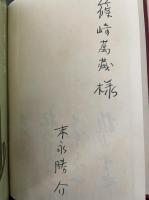 篠崎萬蔵様
末永勝介